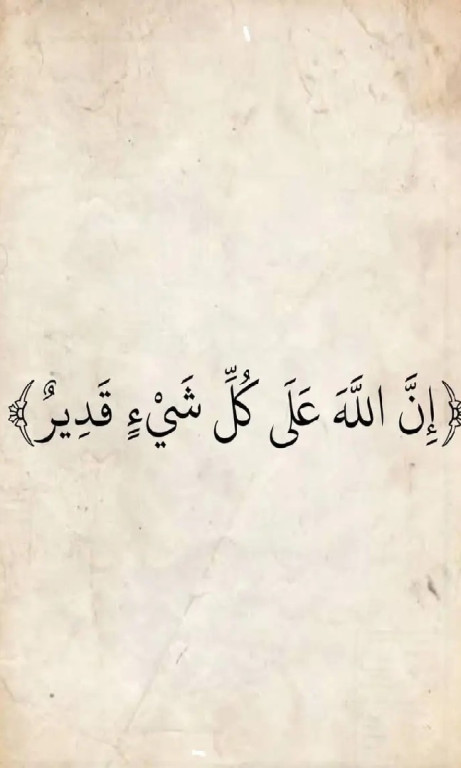 ﴿إِنَّ اللَّهَ عَلَى كُلِّ شَيْءٍ قَدِيرٌ﴾